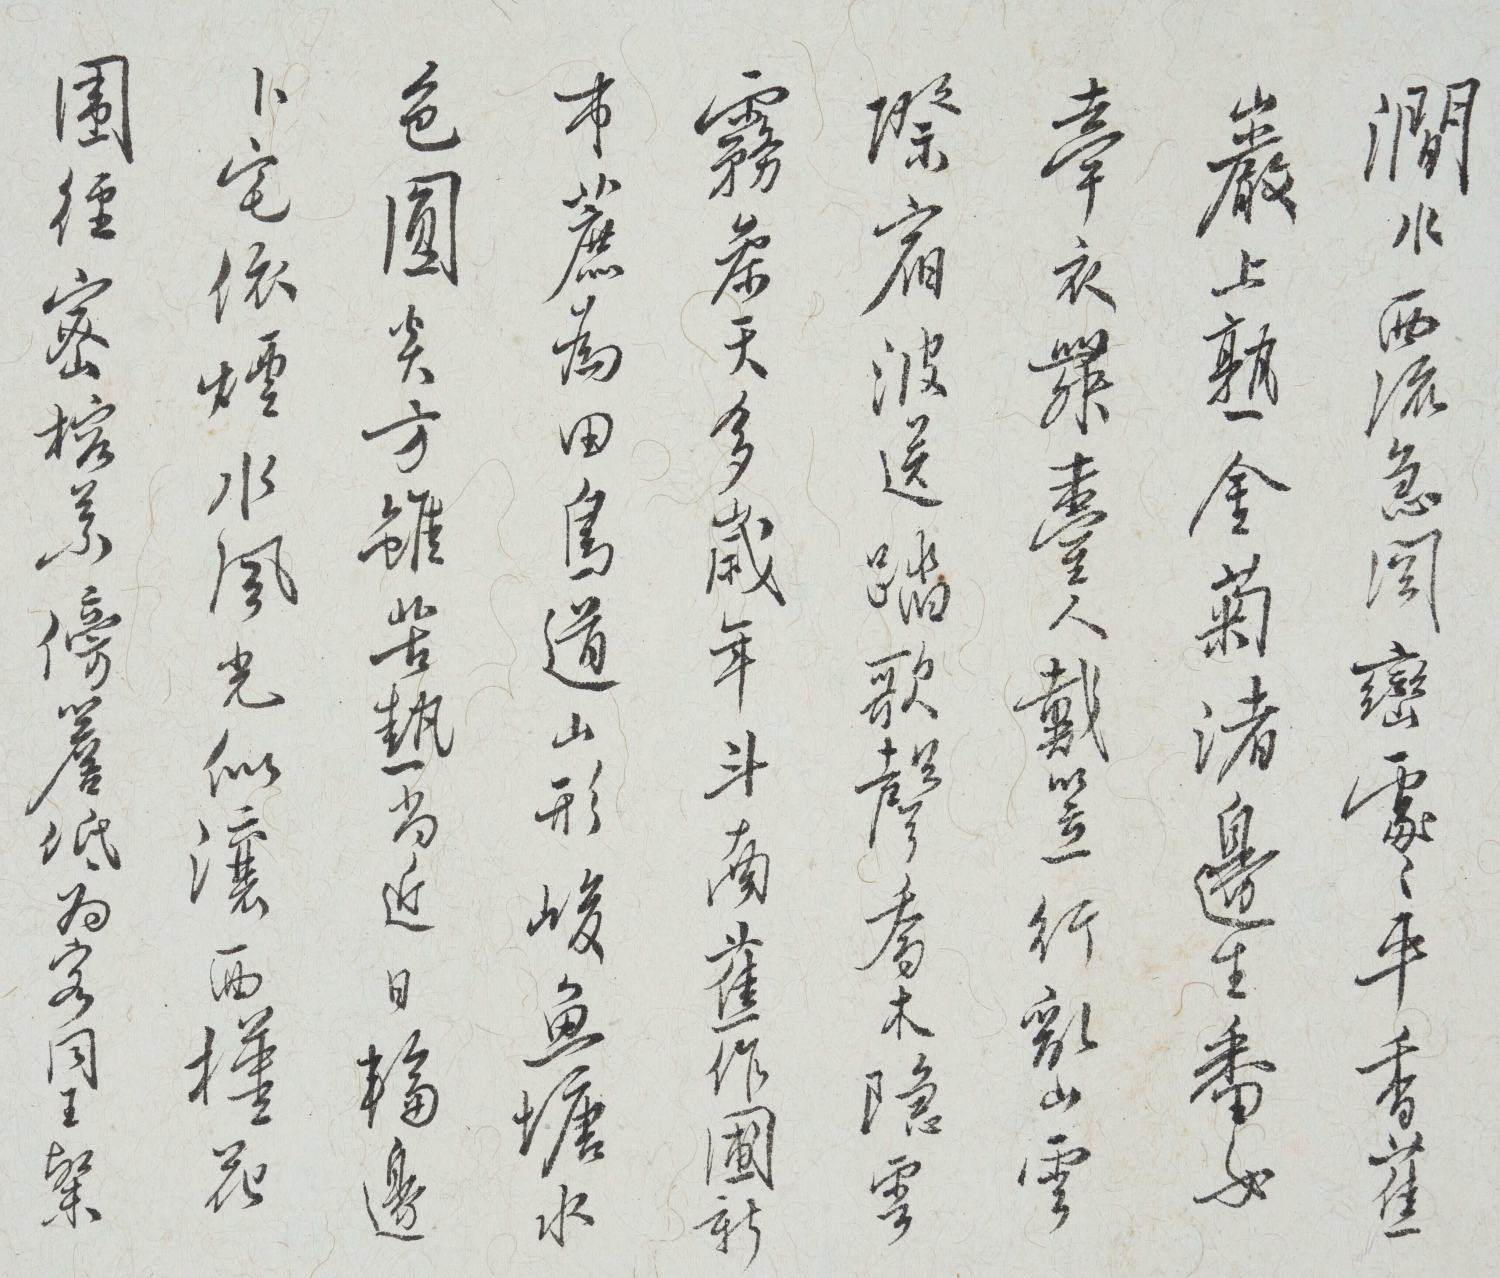 澗水西流急閩巒處〻平香蕉
巖上熟金菊渚邊生番女
牽衣臺人戴笠行亂山雲
際宿波送踏歌聲喬木隱雲
霧參天多歲年斗南蕉作圃新
市蔗為田鳥道山形峻魚塘水
色圓炎方雖苦熱尚近日輪邊
卜宅依煙水風光似瀼西槿花
圍徑密榕葉傍簷低為客同王粲